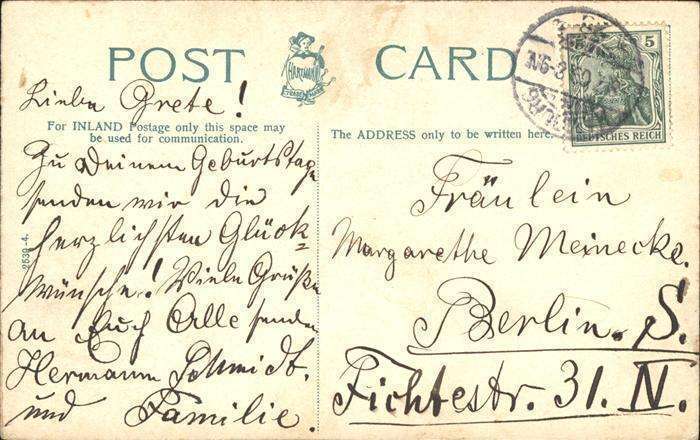 POST CARD
HARTMANN
TRADE MARK
5
DEUTSCHES REICH
For INLAND Postage only this space may
be used for communication.
The ADDRESS only to be written here.
2539-4.
Liebe Grete!
Zu Deinem Geburtstage
senden wir die
herzlichsten Glück-
wünsche! Viele Grüße
an Euch Alle senden
Hermann Schmidt.
und Familie.
Fräulein
Margarethe Meinecke.
Berlin. S.
Fichtestr. 31. IV.